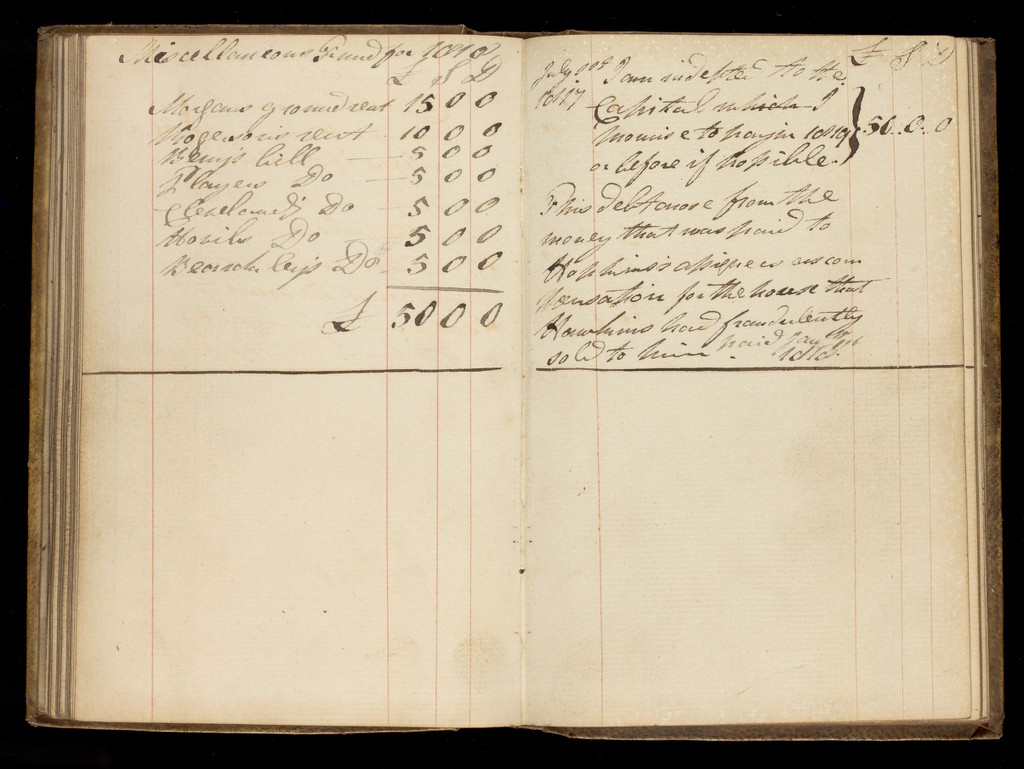 Miscellaneous Fund for 1818
£ S D
Morgans ground rent 15 0 0
Rogersons rent 10 0 0
Berry's bill — 5 0 0
Players Do — 5 0 0
Cleveland's Do 5 0 0
Hovils Do 5 0 0
Beardsley's Do 5 0 0
£ 50 0 0
£ S D
July I am indepted to the
1817 Capital which I
promise to pay in 1819 } 50..0..0
or before if possible.
This debt arose from the
money that was paid to
Hopkins's assignees as com
pensation for the house that
Hawkins had fraudulently
sold to him. paid Jan
1818.